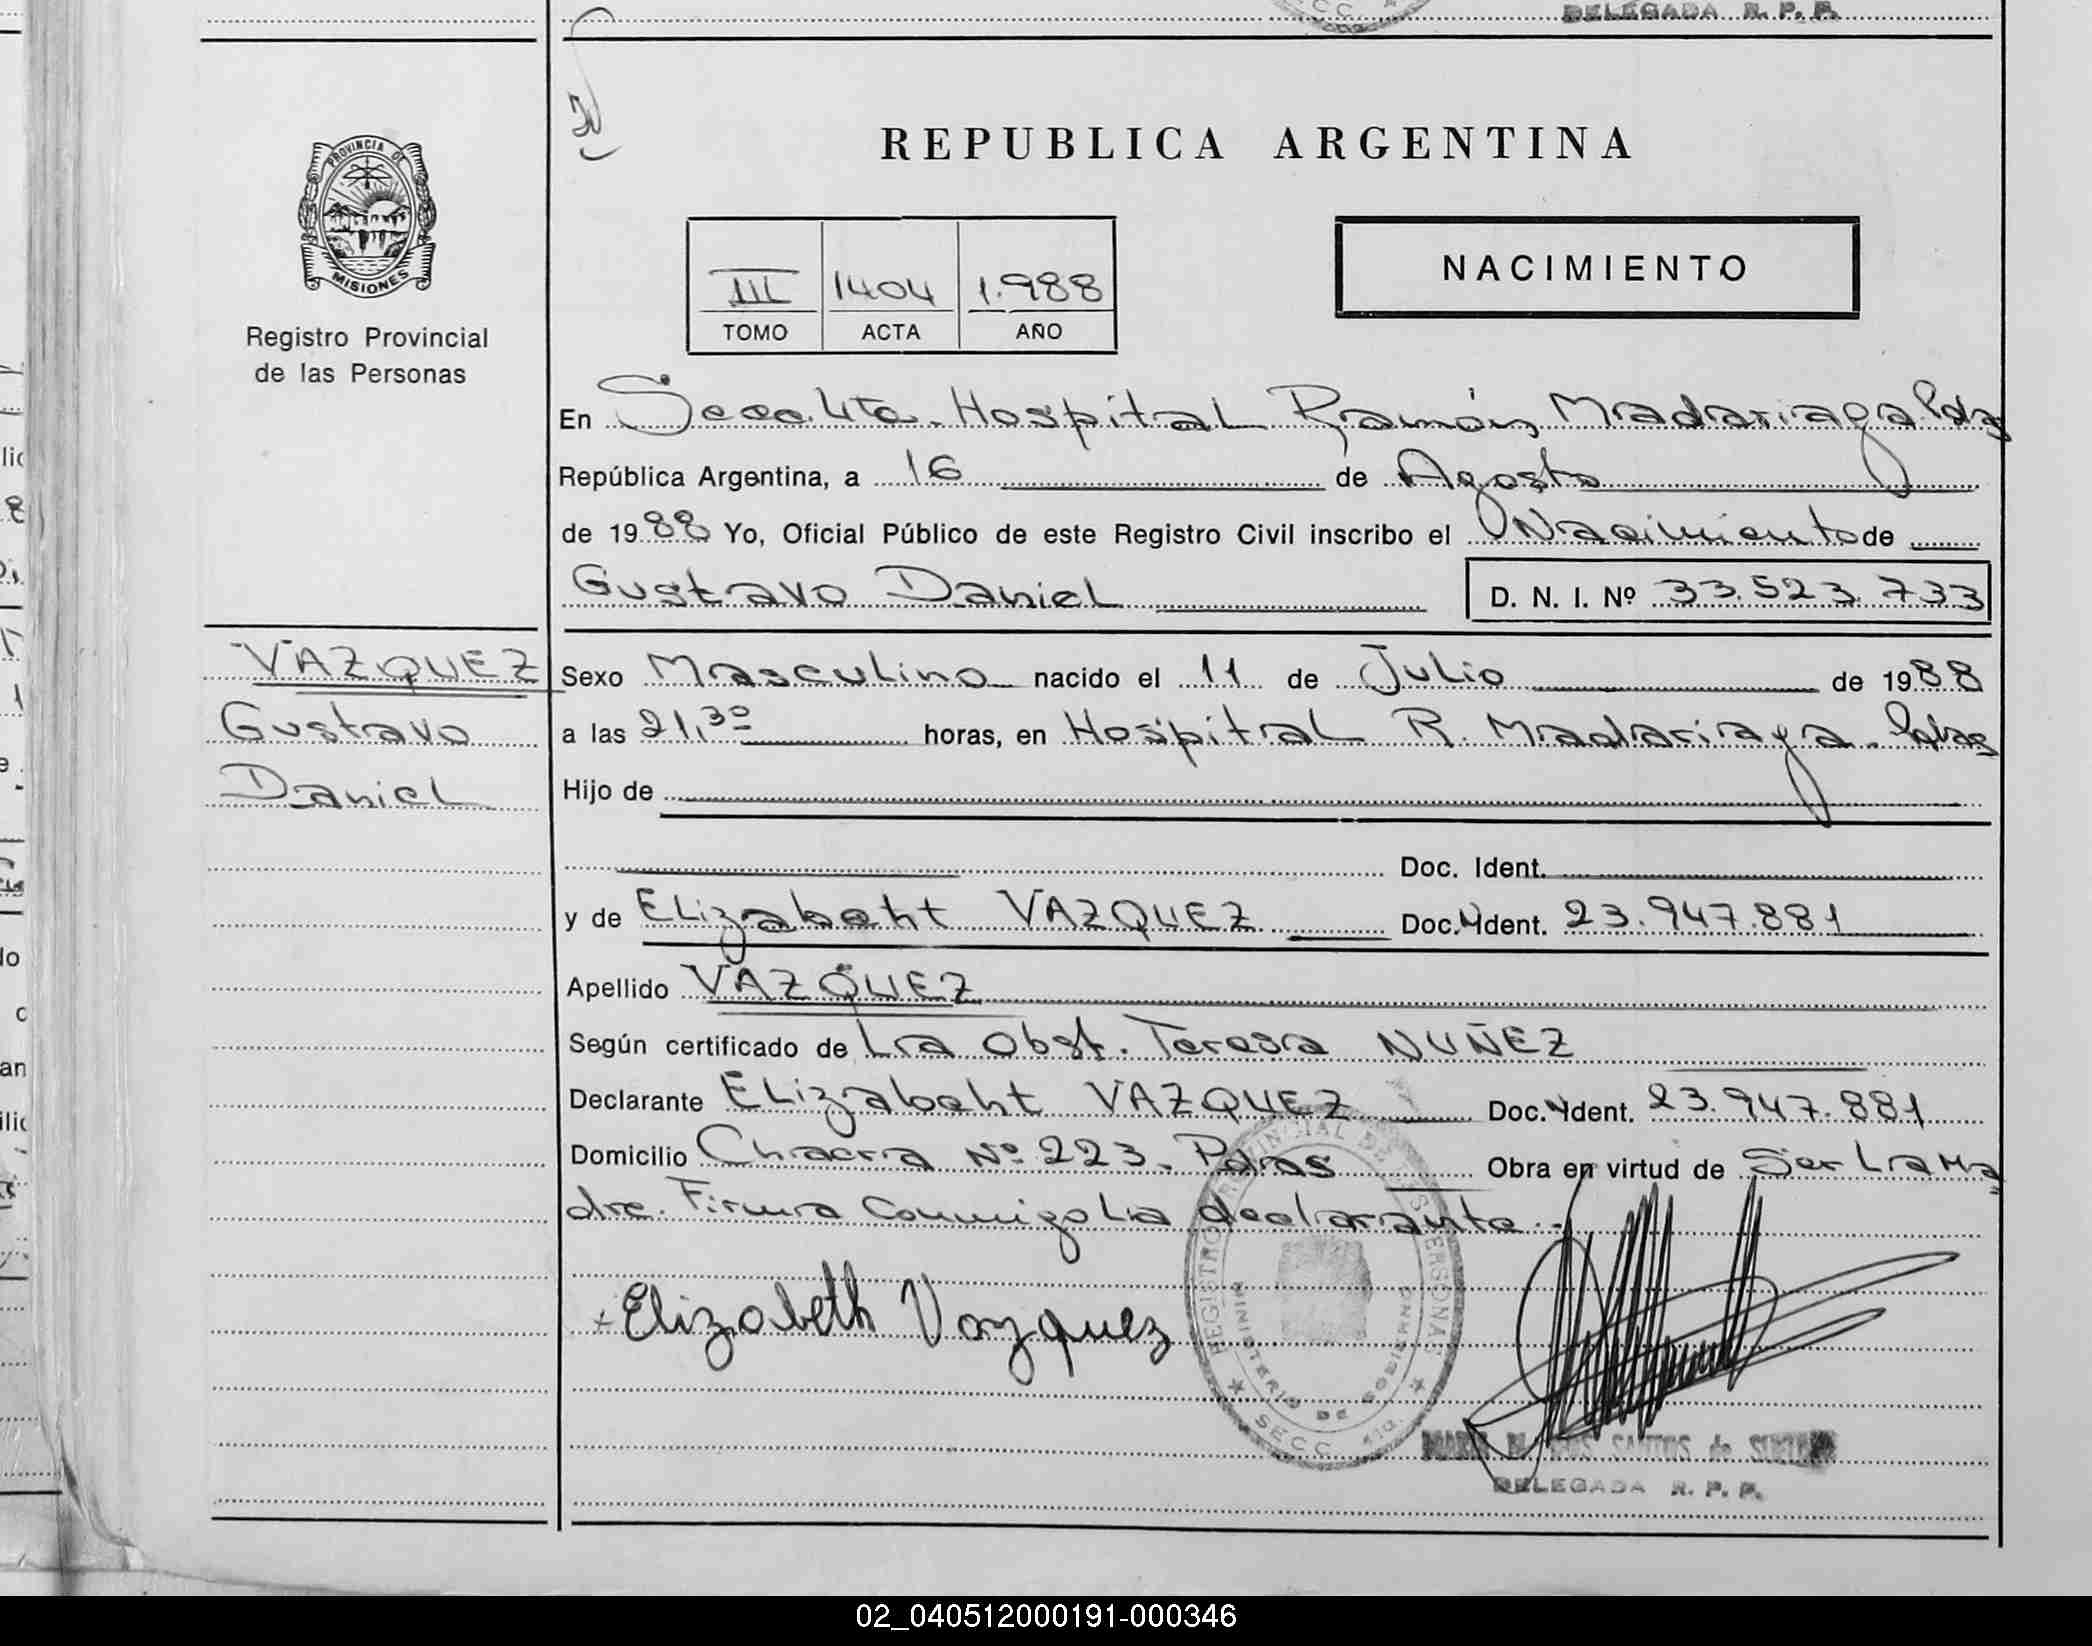 DELEGADA R. P. P.
PROVINCIA DE
MISIONES
Registro Provincial
de las Personas
REPUBLICA ARGENTINA
NACIMIENTO
III 1404 1.988
TOMO ACTA AÑO
En Secc. 4ta. Hospital Ramón Madariaga Pdas
República Argentina, a 16 de Agosto
de 1988 Yo, Oficial Público de este Registro Civil inscribo el Nacimiento de
Gustavo Daniel D. N. I. Nº 33.523.733
VAZQUEZ
Gustavo
Daniel
Sexo Masculino nacido el 11 de Julio de 1988
a las 21,30 horas, en Hospital R. Madariaga. Pdas
Hijo de
Doc. Ident.
y de Elizabeht VAZQUEZ Doc. Ident. 23.947.881
Apellido VAZQUEZ
Según certificado de La Obst. Teresa NUÑEZ
Declarante Elizabeht VAZQUEZ Doc. Ident. 23.947.881
Domicilio Chacra Nº 223. Pdas Obra en virtud de Ser La Ma
dre. Firma Conmigo La declarante.
Elizabeth Vazquez
REGISTRO PROVINCIAL DE LAS PERSONAS
MINISTERIO DE GOBIERNO
SECC. 4ta.
SANTOS de
DELEGADA R. P. P.
02_040512000191-000346